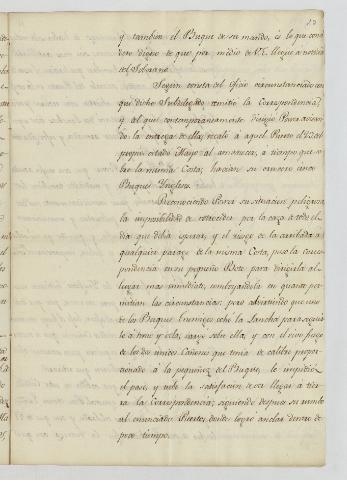 y tambien el Buque de su mando, es lo que con
digno de que por medio de V.E. llegue a noticia
del Soberano.
Segun consta del Oficio circunstanciado con
que dicho Subdelegado remitio la Correspondencia,
y al que contemporaneamente dirigio Perez avisan
do la entrega de ella, recaló à aquel Puerto el 22 del
propio citado Mayo al amanecer, à tiempo que so
bre la misma Costa, hacian su crucero unos
Buques Yngleses.
Reconociendo Perez su situacion peligrosa,
la imposibilidad de retroceder por la caza à todo el
dia que debia esperar, y el riesgo de la arribada à
qualquier parage de la misma Costa, puso la corres
pondencia en su pequeño Bote para dirigirla al
lugar mas inmediato, embarcandola en quanto per
mitian las circunstancias; pero advirtiendo que uno
de los Buques Enemigos echó la Lancha para seguir
y con el vivo fuego
de los dos unicos Cañones que tenia de calibre propor
cionado à la pequeñez del Buque, le impidió
el paso, y tubo la satisfaccion de ver llegar à tier
ra la Correspondencia; siguiendo despues su rumbo
al enunciado Puerto, donde logró anclar dentro de
poco tiempo.